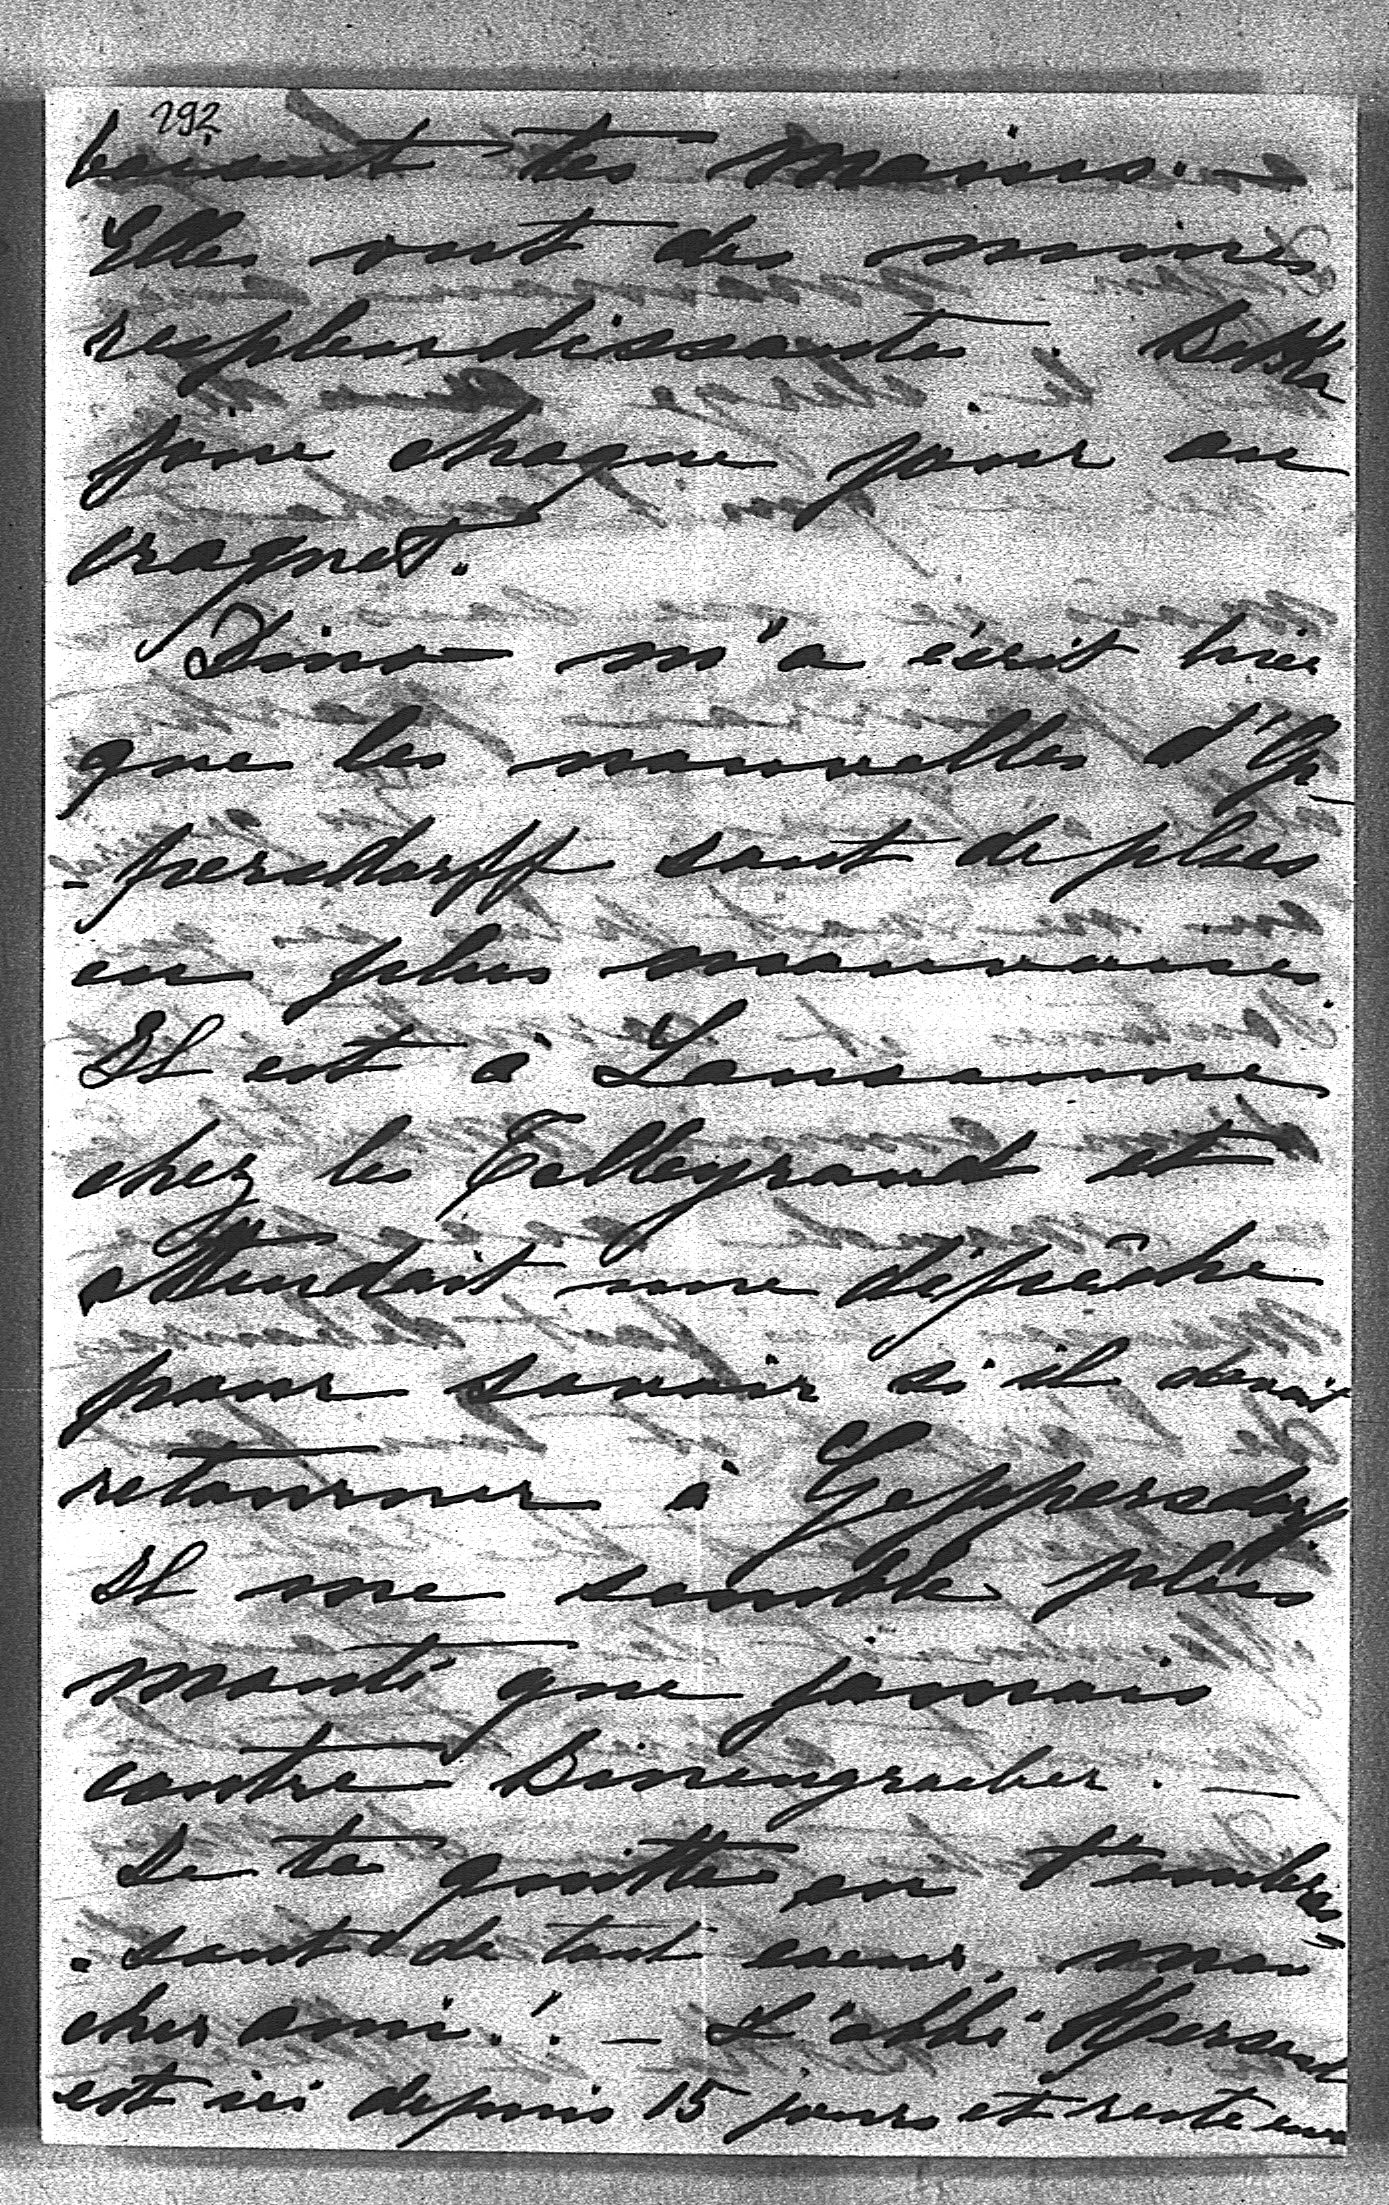 292
baisent tes mains. —
Elles ont des mines
resplendissantes. Betka
joue chaque jour au
craquet.
Dino m'a écrit hier
que les nouvelles d'Op-
- persdorff sont de plus
en plus mauvaises.
Il est à Lausanne
chez les Talleyrand et
attendait une dépêche
pour savoir si il devait
retourner à Geppersdorf.
Il me semble plus
monté que jamais
contre Binengraeber. —
Je te quitte en t'embras-
- sant de tout coeur, mon
cher ami! — L'abbé
est ici depuis 15 jours et reste